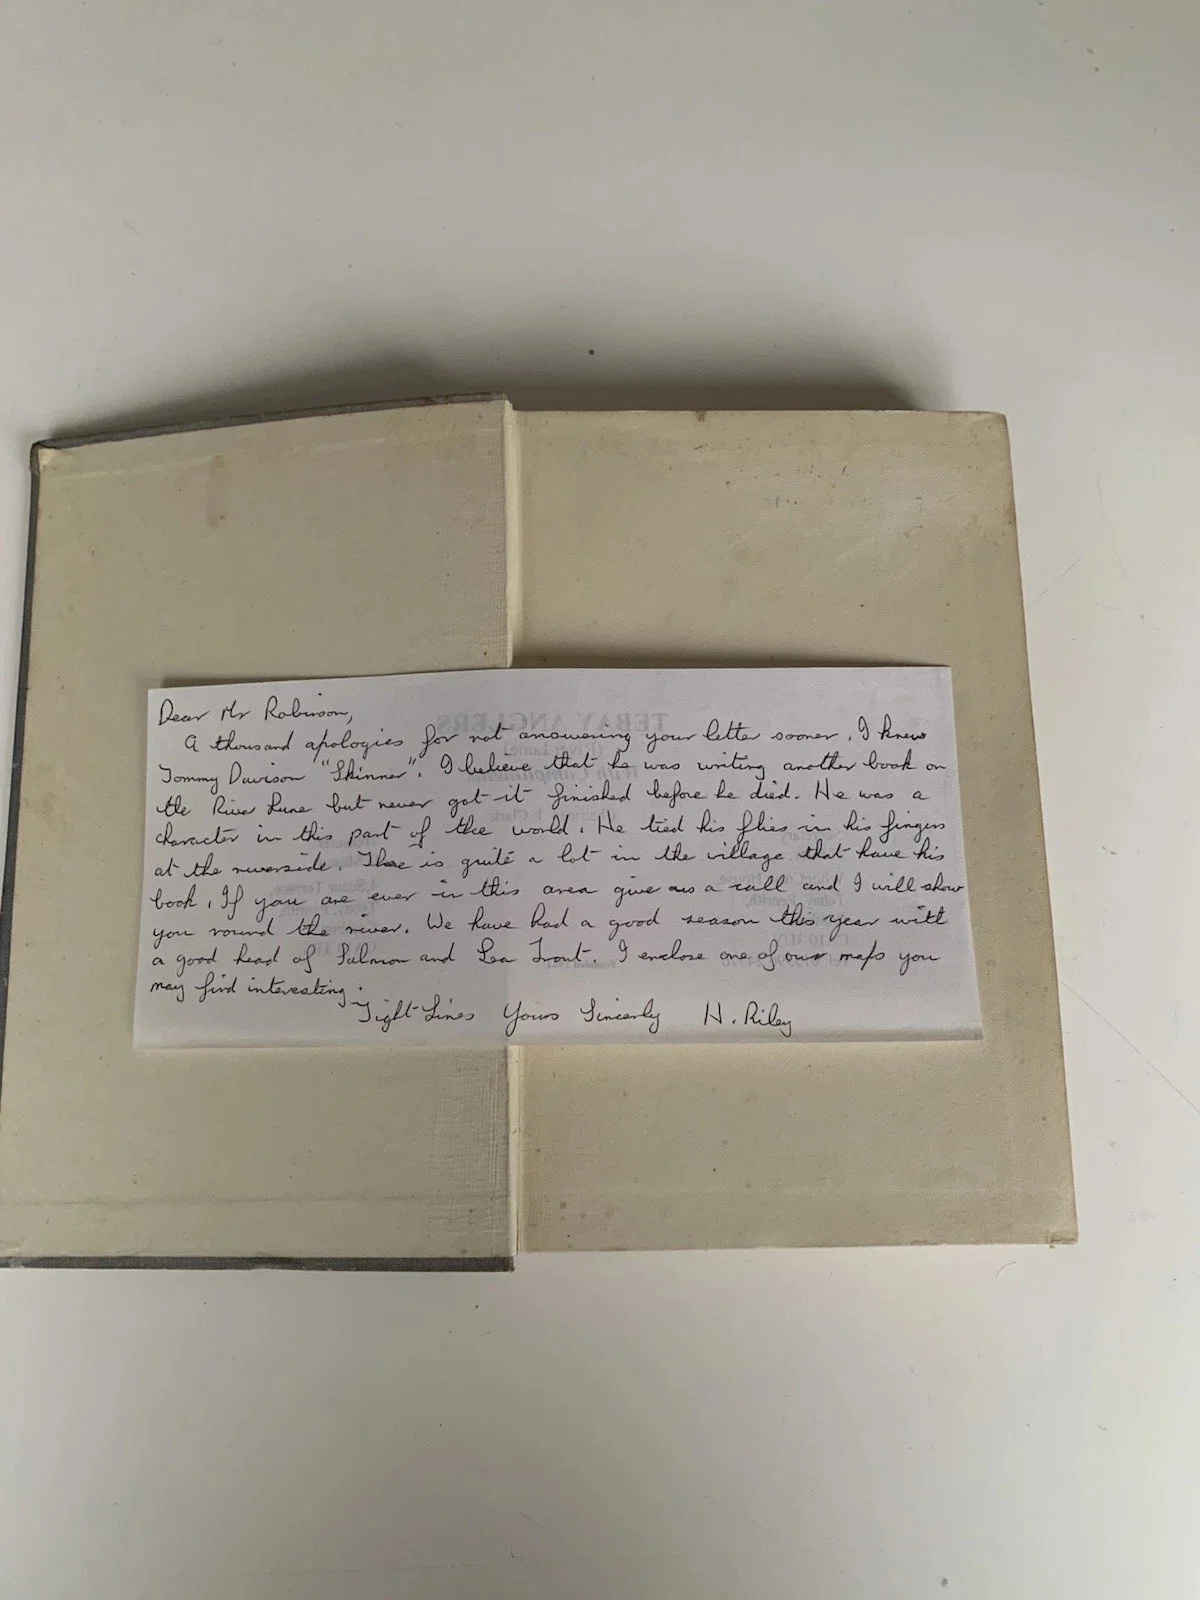 Dear Mr Robinson,
A thousand apologies for not answering your letter sooner. I knew
Tommy Davison "Skinner". I believe that he was writing another book on
the River Lune but never got it finished before he died. He was a
character in this part of the world. He tied his flies in his fingers
at the riverside. There is quite a lot in the village that have his
book. If you are ever in this area give us a call and I will show
you round the river. We have had a good season this year with
a good head of Salmon and Sea Trout. I enclose one of our maps you
may find interesting.
Tight Lines Yours Sincerly H. Riley
TEBAY ANGLERS
(River Lune)
With Compliments